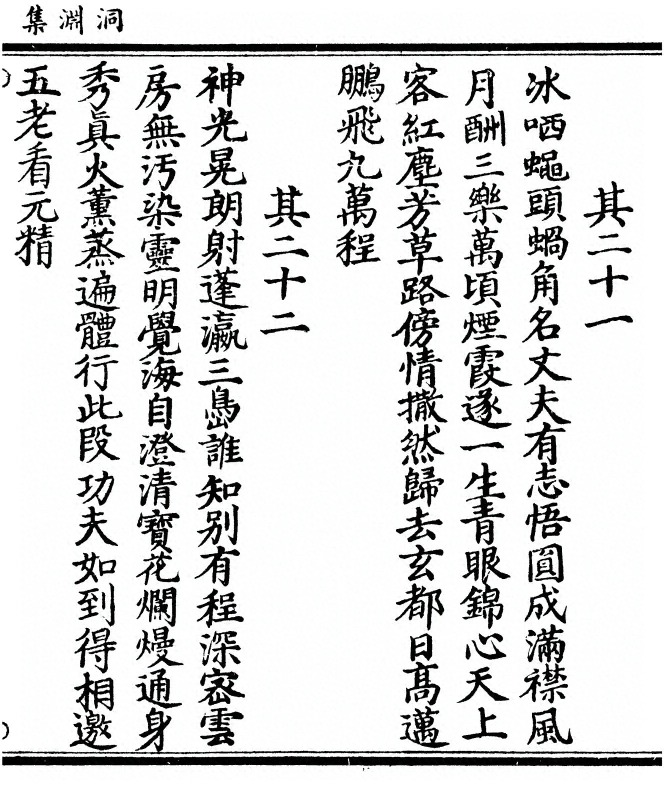 洞淵集
其二十一
冰哂蠅頭蝸角名丈夫有志悟圓成滿襟風
月酬三樂萬頃煙霞遂一生青眼錦心天上
客紅塵芳草路傍情撒然歸去玄都日高邁
鵬飛九萬程
其二十二
神光晃朗射蓬瀛三島誰知别有程深宻雲
房無汚染靈明覺海自澄清寶花爛熳通身
秀眞火薰蒸遍體行此段功夫如到得相邀
五老看元精